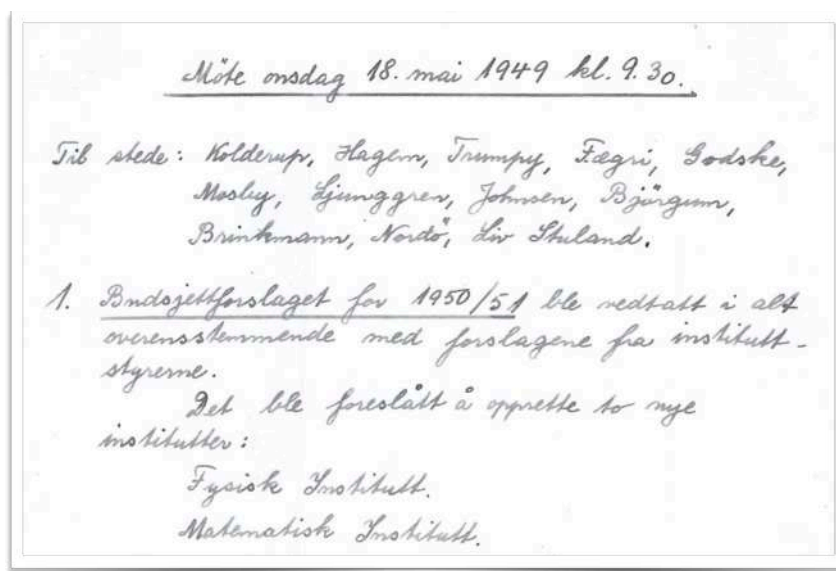 Möte onsdag 18. mai 1949 kl. 9.30.
Til stede: Kolderup, Hagem, Trumpy, Fægri, Godske,
Mosby, Ljunggren, Johnsen, Björgum,
Brinkmann, Nordö, Liv Stuland.
1. Budsjettforslaget for 1950/51 ble vedtatt i alt
overensstemmende med forslagene fra institutt-
styrerne.
Det ble foreslått å opprette to nye
institutter:
Fysisk Institutt.
Matematisk Institutt.